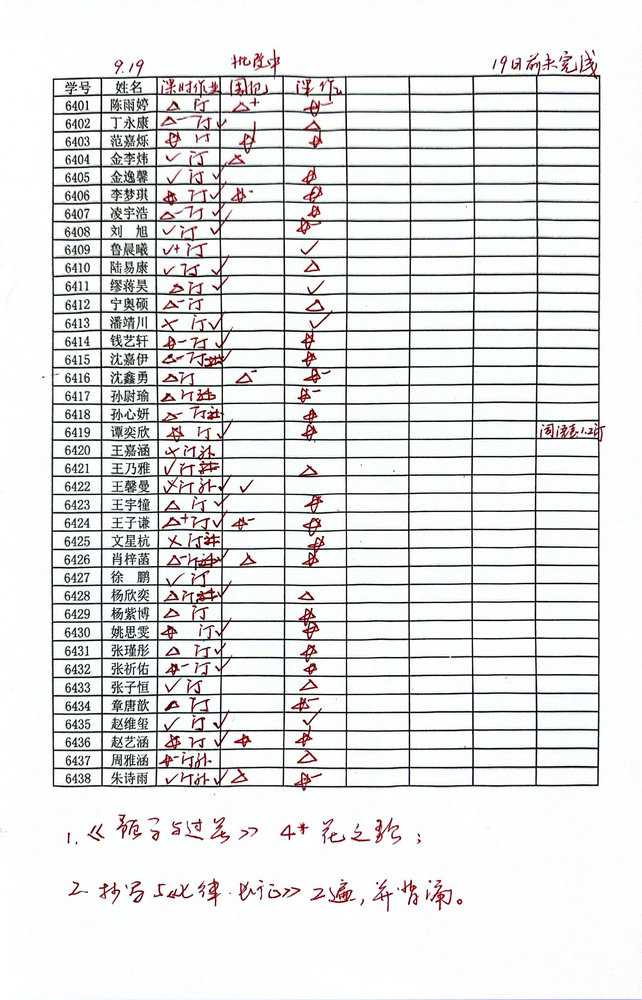 9.19 批改中 19日前未完成
学号 姓名 课时作业 周记 课作
6401 陈雨婷 △ 订 △+ ☆-
6402 丁永康 △- 订 ✓ △
6403 范嘉烁 ☆ 订 ☆ ☆
6404 金李炜 ✓ 订 △
6405 金逸馨 ✓ 订 ✓ ☆
6406 李梦琪 ☆ 订 ✓ ☆- ☆
6407 凌宇浩 △- 订 ✓ ☆
6408 刘旭 ✓ 订 ✓ ☆-
6409 鲁晨曦 ✓+ 订 ✓
6410 陆易康 ✓ 订 ✓ △
6411 缪蒋昊 △ 订 ✓ ✓
6412 宁奥硕 △- 订 △
6413 潘靖川 × 订 ✓ ✓
6414 钱艺轩 ☆- 订 ✓ ☆
6415 沈嘉伊 △- 订 ✓ ☆
6416 沈鑫勇 △ 订 △- ☆-
6417 孙尉瑜 △ 订补 ☆-
6418 孙心妍 △- 订补 ☆
6419 谭奕欣 ☆ 订 ✓ ☆
6420 王嘉涵 × 订补
6421 王乃雅 ✓ 订补 △
6422 王馨曼 × 订补 ✓ ✓
6423 王宇犝 △ 订 ✓ ☆
6424 王子谦 △+ 订 ✓ ☆- ☆
6425 文星杭 × 订补 ☆
6426 肖梓菡 △- 订补 ✓ △ ☆
6427 徐鹏 ✓ 订
6428 杨欣奕 △ 订补 ✓ △
6429 杨紫博 △ 订 ☆
6430 姚思雯 ☆ 订 ✓ ☆
6431 张瑾彤 △ 订 ✓ ☆
6432 张祈佑 ☆- 订 ✓ ☆
6433 张子恒 ✓ 订 △
6434 章唐歆 △ 订 ☆-
6435 赵维玺 ✓ 订 ✓ ✓
6436 赵艺涵 ☆ 订 ✓ ☆ ☆
6437 周雅涵 ☆- 订补 △
6438 朱诗雨 ✓ 订补 ✓ △ ☆-
1.《 与过关》 4* 花之歌；
2. 抄写《七律·长征》2遍,并背诵。